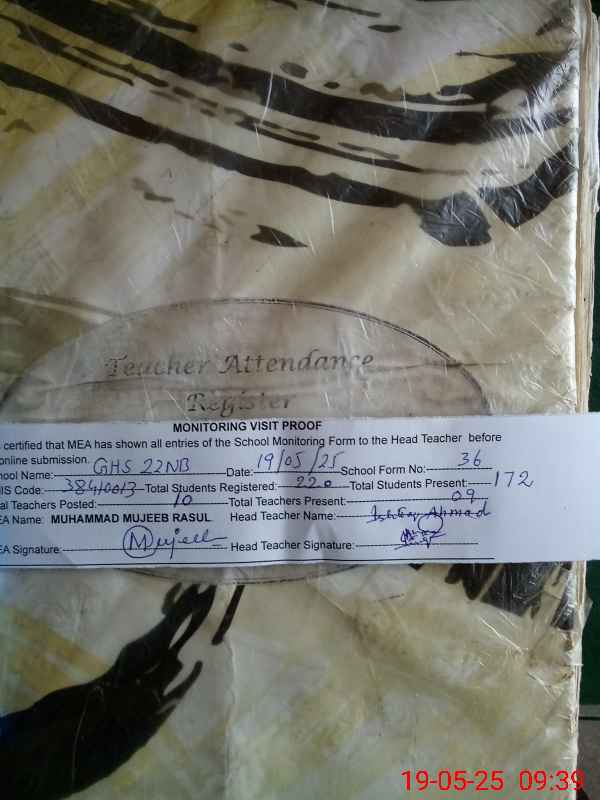 Teacher Attendance
Register
MONITORING VISIT PROOF
certified that MEA has shown all entries of the School Monitoring Form to the Head Teacher before
online submission.
School Name: GHS 22NB Date: 19/05/25 School Form No: 36
IS Code: 38410013 Total Students Registered: 220 Total Students Present: 172
Total Teachers Posted: 10 Total Teachers Present: 09
EA Name: MUHAMMAD MUJEEB RASUL Head Teacher Name: Ahmad
EA Signature: Mujeeb Head Teacher Signature:
19-05-25 09:39